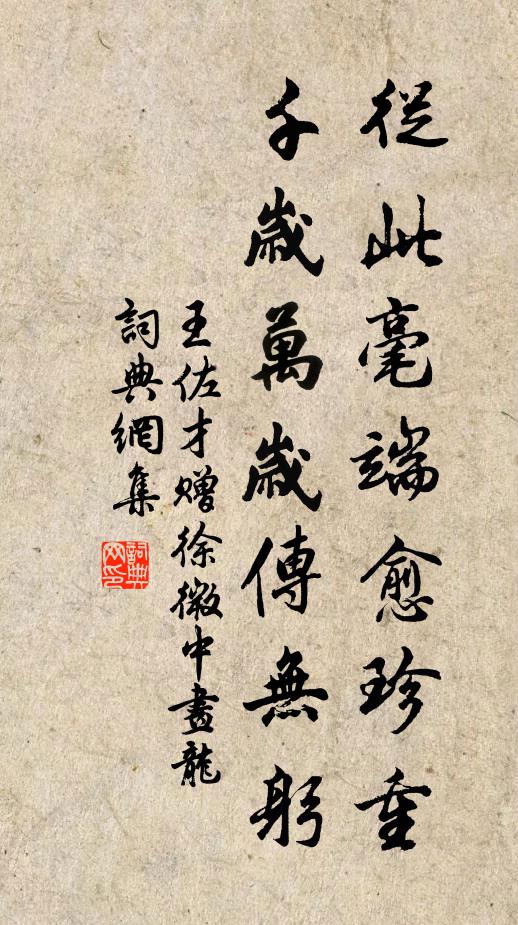 從此毫端愈珍重
千歲萬歲傳無躬
王佐才贈徐徽中畫龍
詞典網集
詞典
网印